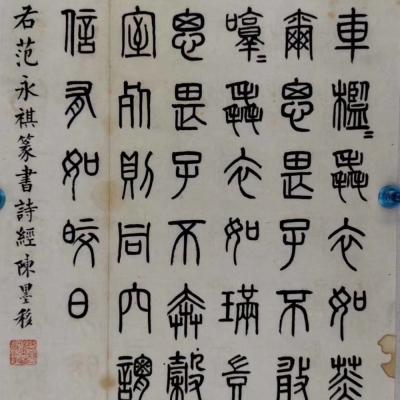 車檻〻毳衣如菼
爾思畏子不敢
啍〻毳衣如璊豈
思畏子不奔穀
室死則同穴謂
信有如皎日
右范永祺篆書詩經陳墨移